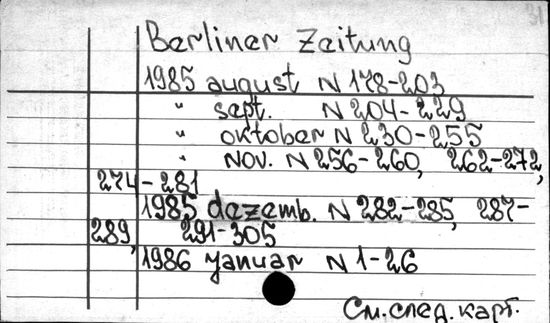 Berliner Zeitung
1985 august N 178-203
" sept. N 204-229
" oktober N 230-255
" nov. N 256-260, 262-272,
274-281
1985 dezemb. N 282-285, 287-
289, 291-305
1986 yanuar N 1-26
См. след. карт.